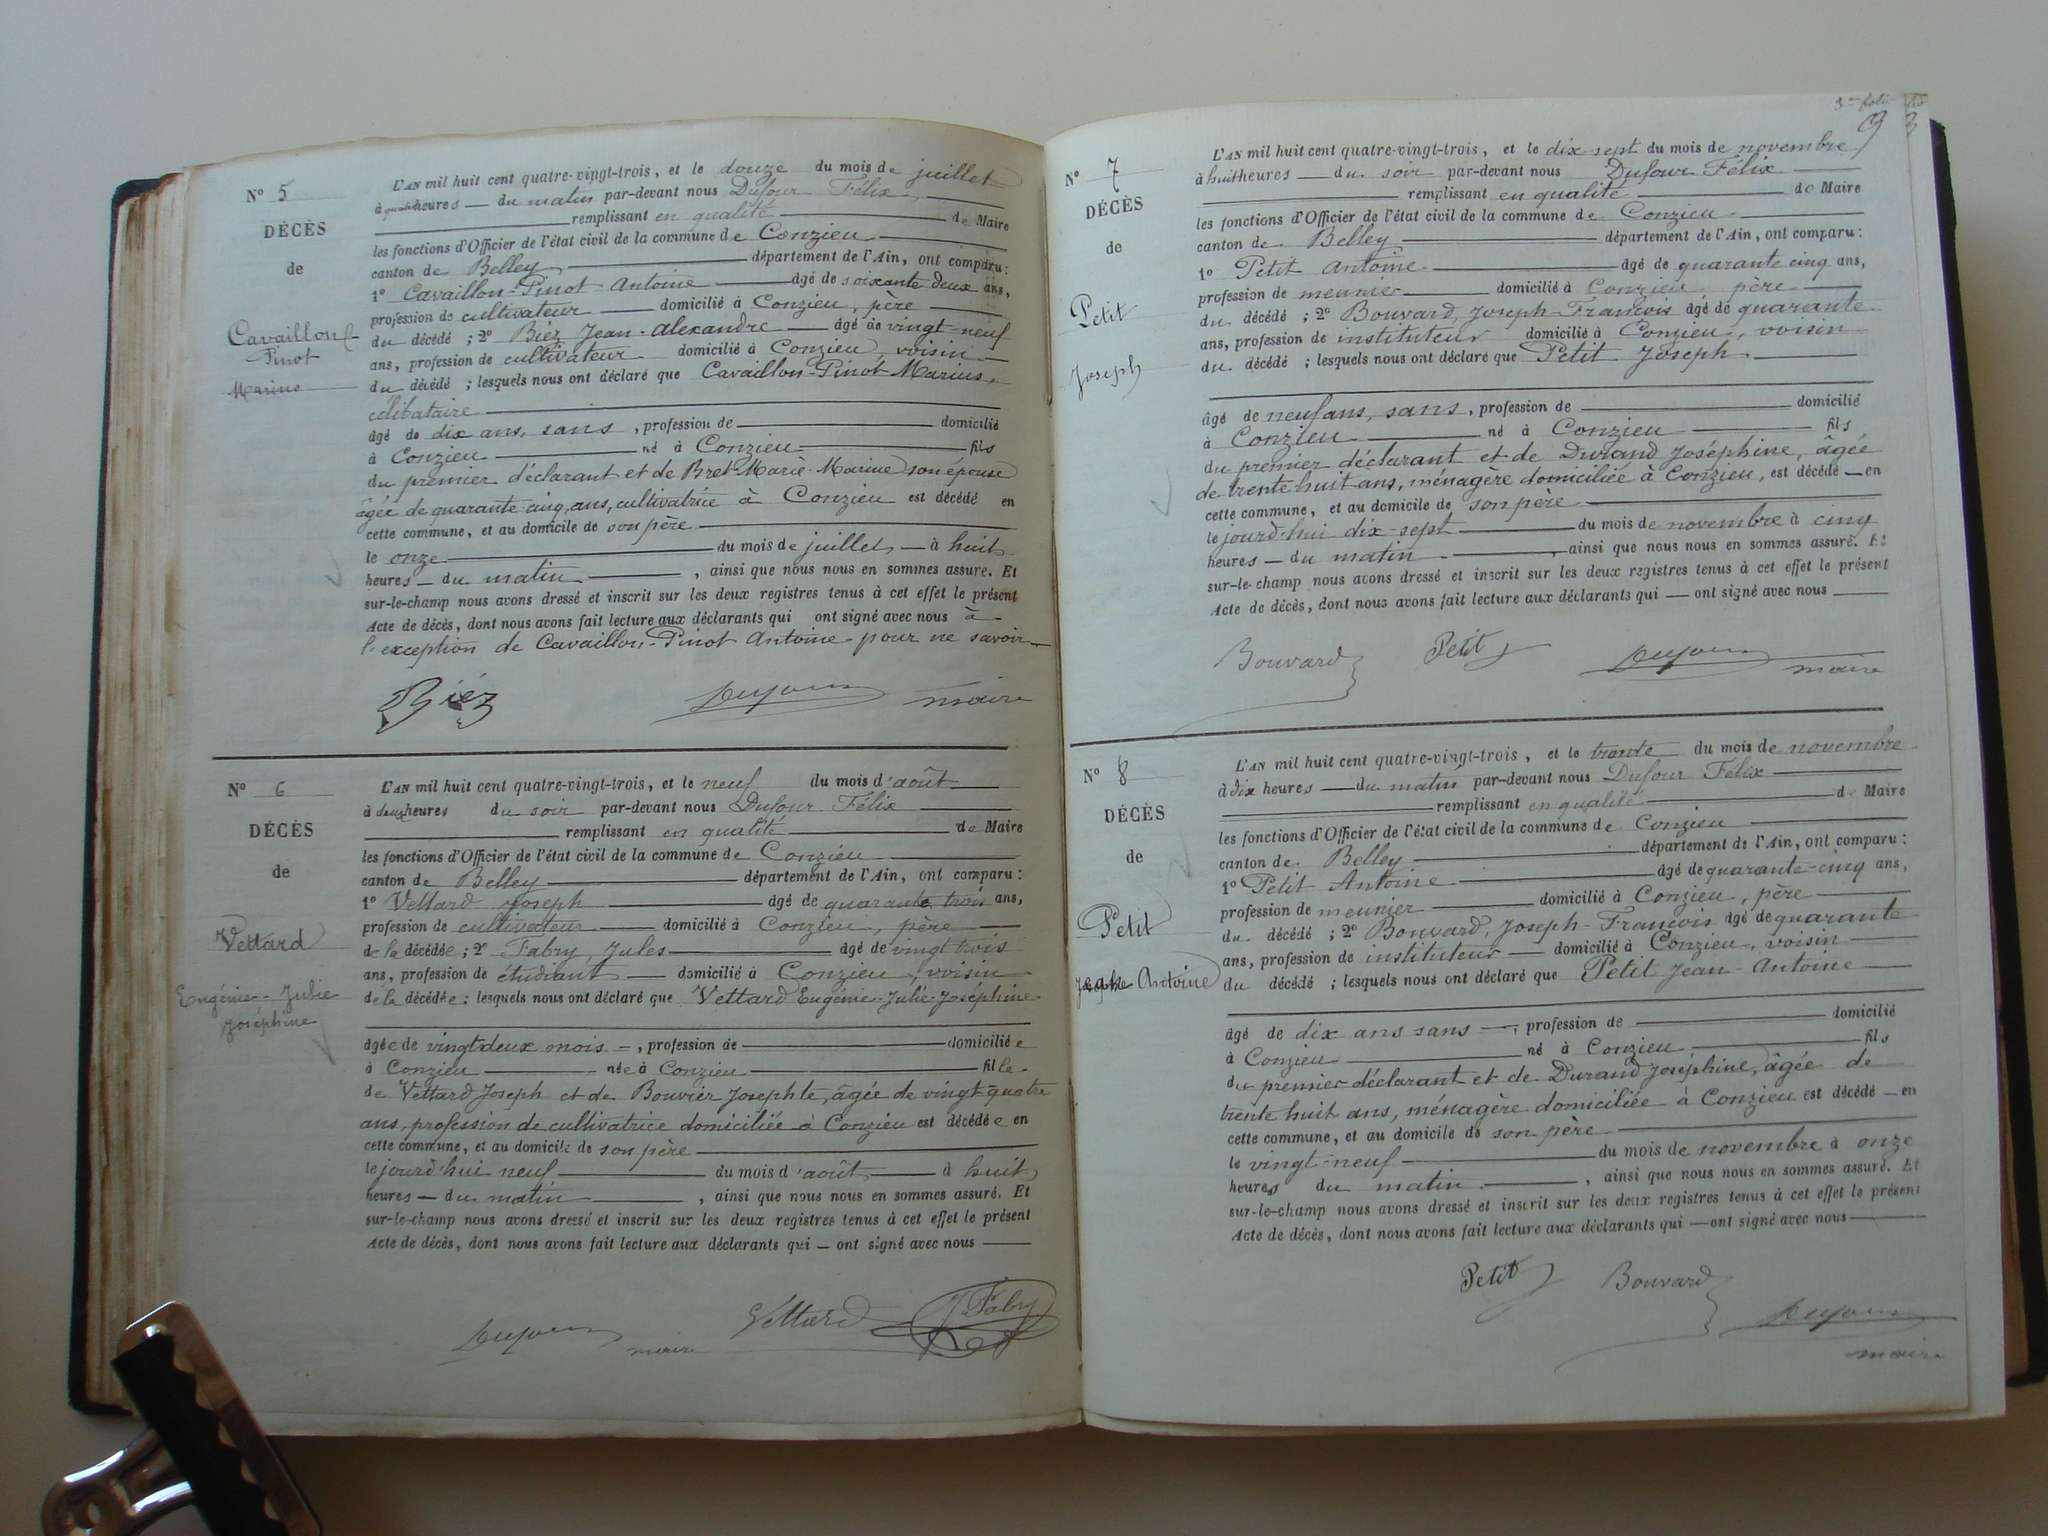 N° 5
DÉCÈS
de
Cavaillon
Pinot
Marius
L'AN mil huit cent quatre-vingt-trois, et le douze du mois de juillet
à quatre heures — du matin par-devant nous Dufour Félix
remplissant en qualité de Maire
les fonctions d'Officier de l'état civil de la commune de Conzieu
canton de Belley département de l'Ain, ont comparu :
1° Cavaillon-Pinot Antoine âgé de soixante deux ans,
profession de cultivateur domicilié à Conzieu, père
du décédé ; 2° Biéz Jean-Alexandre âgé de vingt-neuf
ans, profession de cultivateur domicilié à Conzieu voisin
du décédé ; lesquels nous ont déclaré que Cavaillon-Pinot Marius,
célibataire
âgé de dix ans, sans, profession de domicilié
à Conzieu né à Conzieu fils
du premier déclarant et de Bret Marie-Marine son épouse
âgée de quarante cinq ans, cultivatrice à Conzieu est décédé en
cette commune, et au domicile de son père
le onze du mois de juillet — à huit
heures — du matin, ainsi que nous nous en sommes assuré. Et
sur-le-champ nous avons dressé et inscrit sur les deux registres tenus à cet effet le présent
Acte de décès, dont nous avons fait lecture aux déclarants qui ont signé avec nous à
l'exception de Cavaillon-Pinot Antoine pour ne savoir
Biéz Dufour maire
N° 6
DÉCÈS
de
Vettard
Eugénie-Julie
Joséphine
L'AN mil huit cent quatre-vingt-trois, et le neuf du mois d'août
à deux heures du soir par-devant nous Dufour Félix
remplissant en qualité de Maire
les fonctions d'Officier de l'état civil de la commune de Conzieu
canton de Belley département de l'Ain, ont comparu :
1° Vettard Joseph âgé de quarante trois ans,
profession de cultivateur domicilié à Conzieu, père
de la décédée ; 2° Fabry, Jules âgé de vingt trois
ans, profession de étudiant — domicilié à Conzieu, voisin
de la décédée : lesquels nous ont déclaré que Vettard Eugénie-Julie-Joséphine
âgée de vingt deux mois —, profession de domiciliée
à Conzieu née à Conzieu fille
de Vettard Joseph et de Bouvier Josephte, âgée de vingt-quatre
ans, profession de cultivatrice domiciliée à Conzieu est décédée en
cette commune, et au domicile de son père
le jourd'hui neuf du mois d'août — à huit
heures — du matin, ainsi que nous nous en sommes assuré. Et
sur-le-champ nous avons dressé et inscrit sur les deux registres tenus à cet effet le présent
Acte de décès, dont nous avons fait lecture aux déclarants qui — ont signé avec nous —
Dufour maire Vettard J Fabry
93
N° 7
DÉCÈS
de
Petit
Joseph
L'AN mil huit cent quatre-vingt-trois, et le dix sept du mois de novembre
à huit heures — du soir par-devant nous Dufour Félix
remplissant en qualité de Maire
les fonctions d'Officier de l'état civil de la commune de Conzieu
canton de Belley département de l'Ain, ont comparu :
1° Petit Antoine âgé de quarante cinq ans,
profession de meunier domicilié à Conzieu père
du décédé ; 2° Bouvard, Joseph-François âgé de quarante
ans, profession de instituteur domicilié à Conzieu, voisin
du décédé ; lesquels nous ont déclaré que Petit Joseph
âgé de neuf ans, sans, profession de domicilié
à Conzieu né à Conzieu fils
du premier déclarant et de Durand Joséphine, âgée
de trente huit ans, ménagère domiciliée à Conzieu, est décédé — en
cette commune, et au domicile de son père
le jourd'hui dix-sept du mois de novembre à cinq
heures — du matin, ainsi que nous nous en sommes assuré. Et
sur-le-champ nous avons dressé et inscrit sur les deux registres tenus à cet effet le présent
Acte de décès, dont nous avons fait lecture aux déclarants qui — ont signé avec nous —
Bouvard Petit Dufour maire
N° 8
DÉCÈS
de
Petit
Jean Antoine
L'AN mil huit cent quatre-vingt-trois, et le trente du mois de novembre
à dix heures — du matin par-devant nous Dufour Félix
remplissant en qualité de Maire
les fonctions d'Officier de l'état civil de la commune de Conzieu
canton de Belley département de l'Ain, ont comparu :
1° Petit Antoine âgé de quarante-cinq ans,
profession de meunier domicilié à Conzieu, père
du décédé ; 2° Bouvard, Joseph-François âgé de quarante
ans, profession de instituteur — domicilié à Conzieu, voisin
du décédé ; lesquels nous ont déclaré que Petit Jean-Antoine
âgé de dix ans sans —, profession de domicilié
à Conzieu né à Conzieu fils
du premier déclarant et de Durand Joséphine, âgée de
trente huit ans, ménagère domiciliée à Conzieu est décédé — en
cette commune, et au domicile de son père
le vingt-neuf du mois de novembre à onze
heures du matin, ainsi que nous nous en sommes assuré. Et
sur-le-champ nous avons dressé et inscrit sur les deux registres tenus à cet effet le présent
Acte de décès, dont nous avons fait lecture aux déclarants qui — ont signé avec nous —
Petit Bouvard Dufour
maire